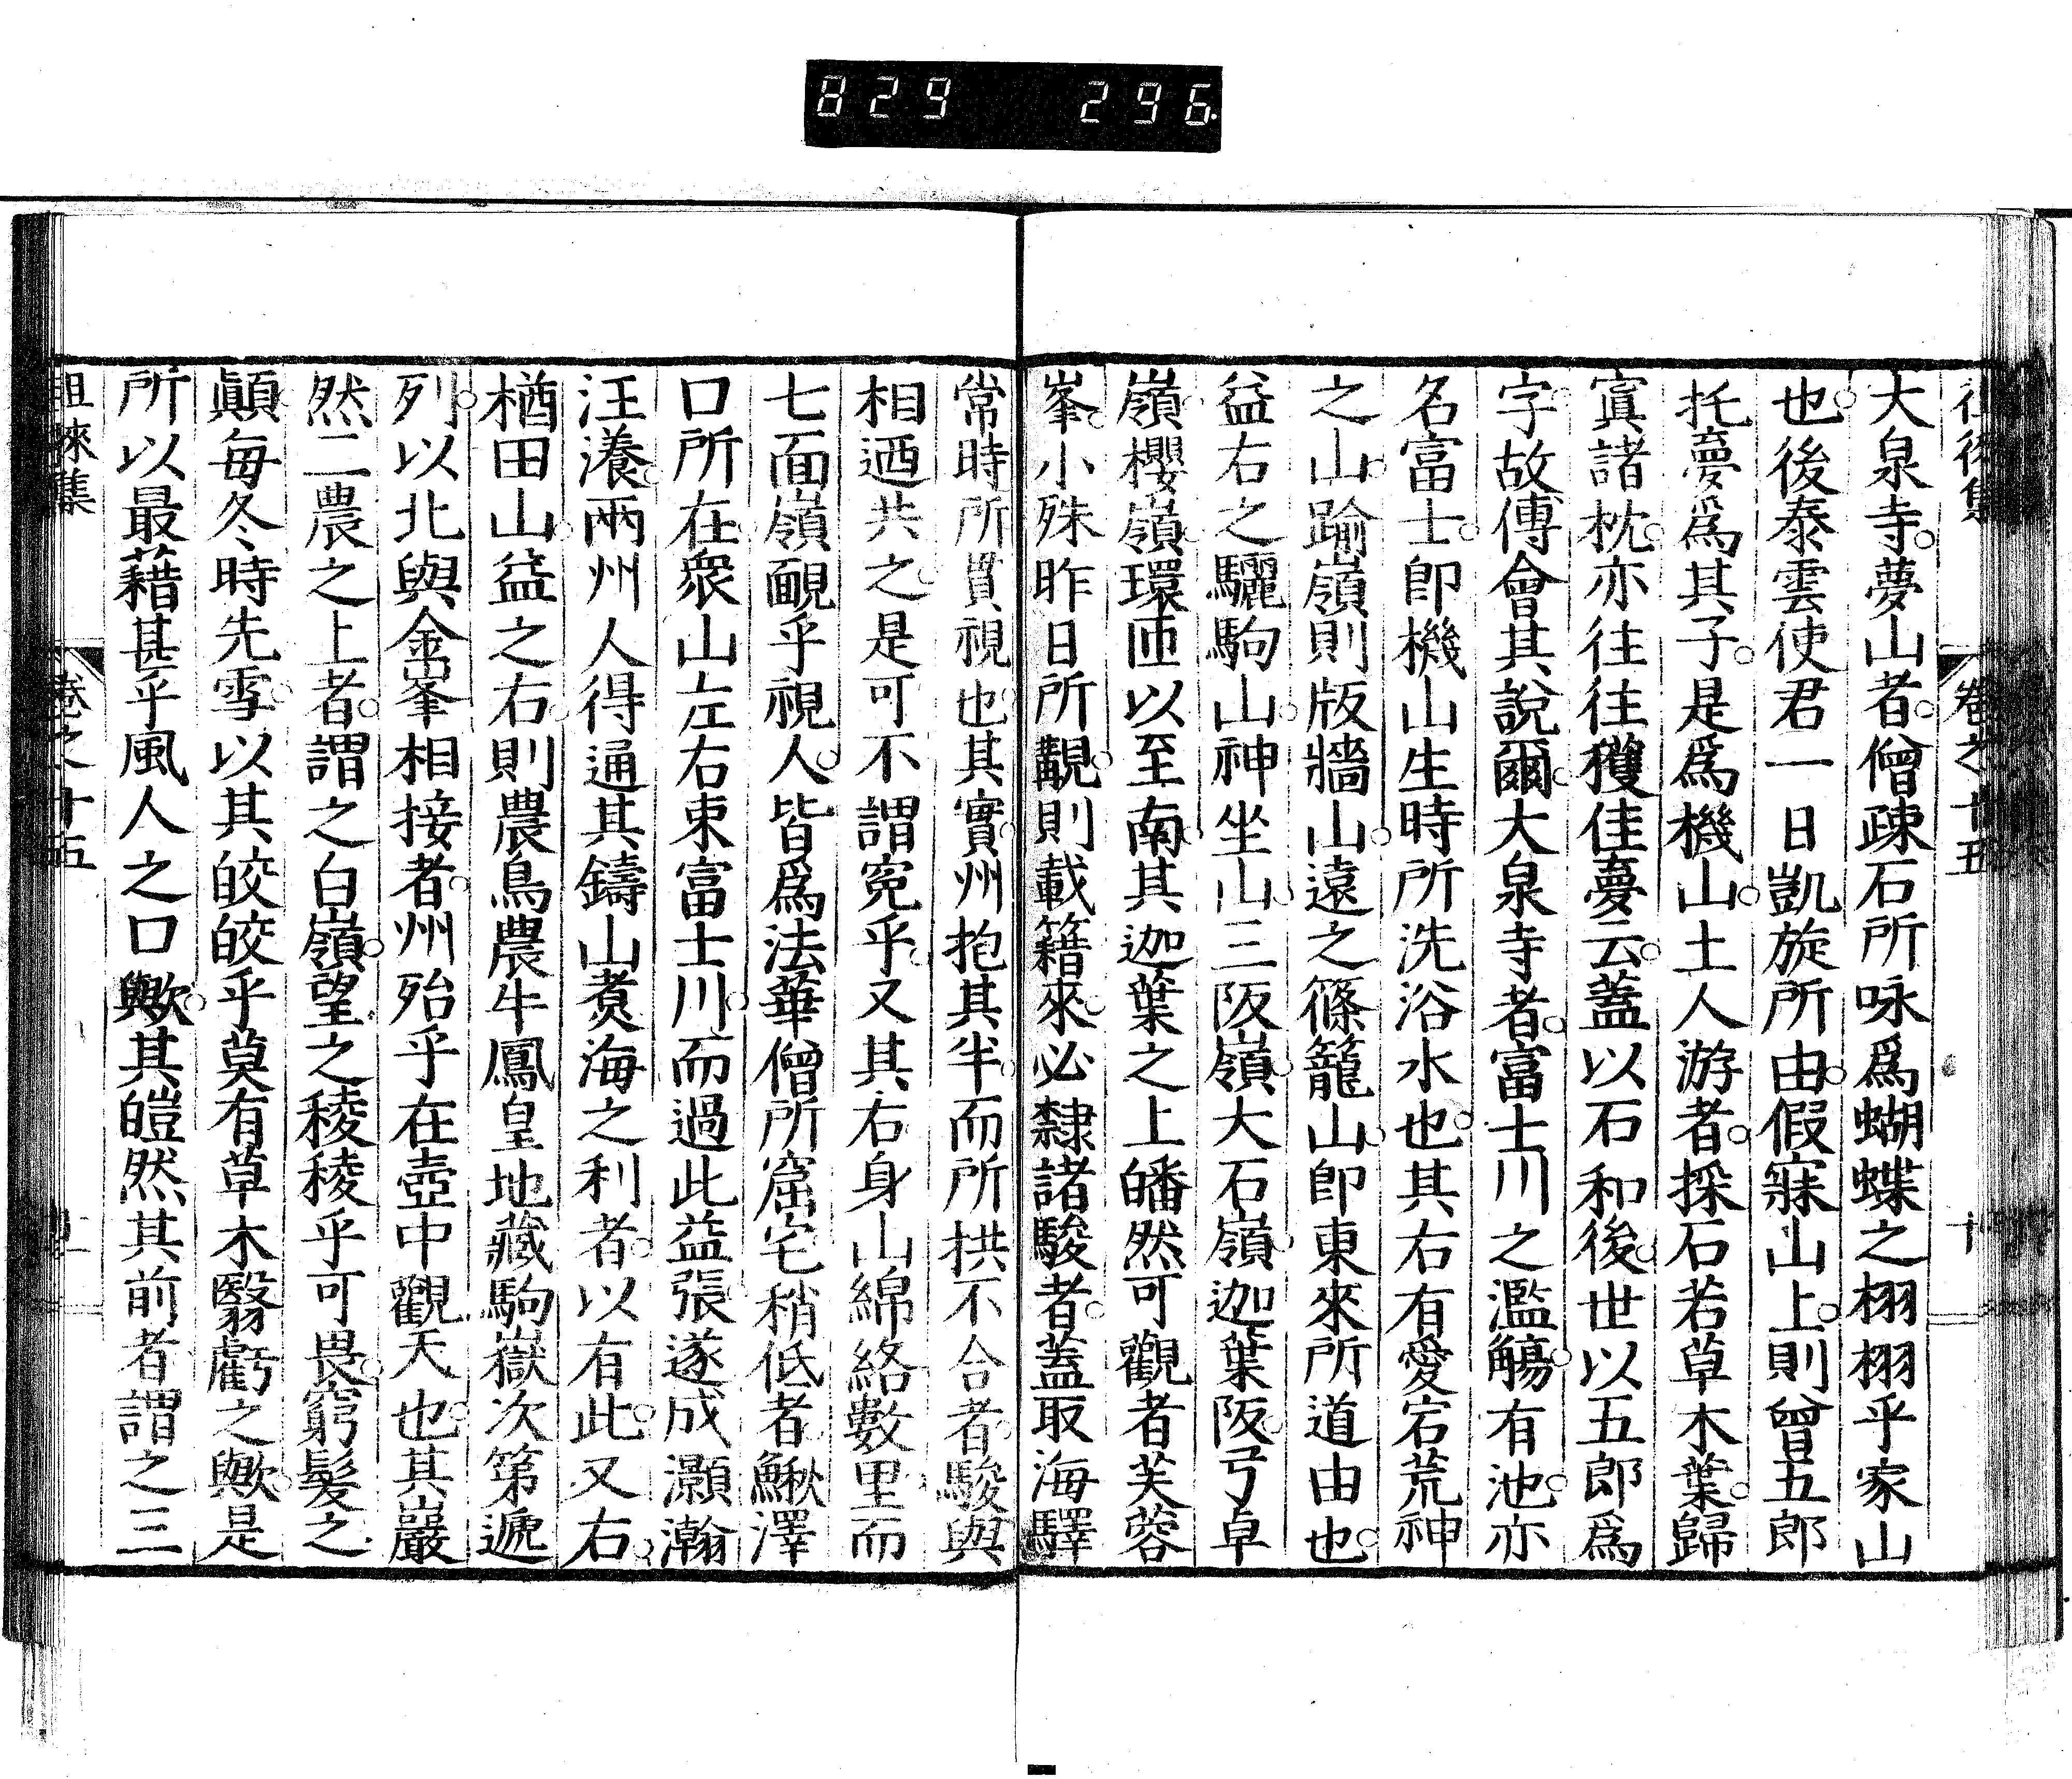 829 296
卷之十五
十
大泉寺。夢山者。僧疎石所咏爲蝴蝶之栩栩乎家山
也。後泰雲使君一日凱旋所由。假寐山上。則曾五郎
托夢爲其子。是爲機山。土人游者。採石若草木葉。歸
寘諸枕。亦往往獲佳夢云。蓋以石和後。世以五郎爲
字。故傅會其說爾。大泉寺者。富士川之濫觴。有池。亦
名富士。卽機山生時所洗浴水也。其右有愛宕荒神
之山。踰嶺則版牆山。遠之篠籠山。卽東來所道由也。
益右之驪駒山。神坐山。三阪嶺。大石嶺。迦葉阪。弓卓
嶺。櫻嶺。環匝以至南。其迦葉之上皤然可觀者芙蓉
峯。小殊昨日所覯。則載籍來。必隸諸駿者。蓋取海驛
常時所貫視也。其實州抱其半。而所拱不合者。駿與
相迺共之。是可不謂寃乎。又其右身山綿絡數里。而
七面嶺覼乎視人。皆爲法華僧所窟宅。稍低者。鰍澤
口所在。衆山左右束富士川。而過此益張。遂成灝瀚
汪瀁。兩州人得通其鑄山煑海之利者。以有此。又右。
楢田山。益之右。則農鳥農牛鳳皇地藏駒嶽次第遞
列。以北與金峯相接者。州殆乎在壺中觀天也。其巖
然二農之上者。謂之白嶺。望之稜稜乎可畏。窮髮之
顚。每冬時先雪。以其皎皎乎莫有草木翳虧之歟。是
所以最藉甚乎風人之口歟。其皚然其前者謂之三
徂徠集
卷之十五